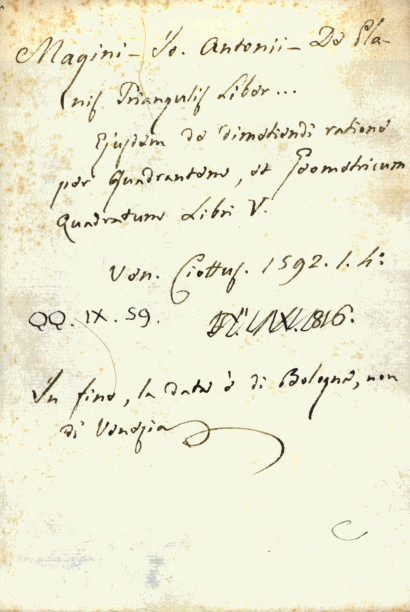 Magini - Jo. Antonii - De Pla-
nis Triangulis Liber...
Ejusdem de dimetiendi ratione
per Quadrantem, et Geometricum
Quadratum Libri V.
Ven. Ciottus. 1592. 1. 4:
QQ. IX. 59.
In fine, la data è di Bologna, non
di Venezia